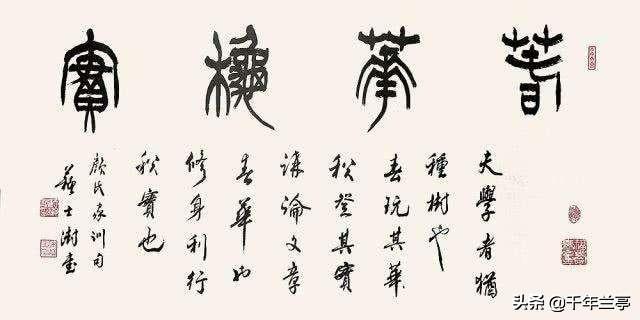 春華秋實
夫學者猶
種樹也
春玩其華
秋登其實
講論文章
春華也
修身利行
秋實也
顏氏家訓句
蘇士澍書
头条 @千年兰亭